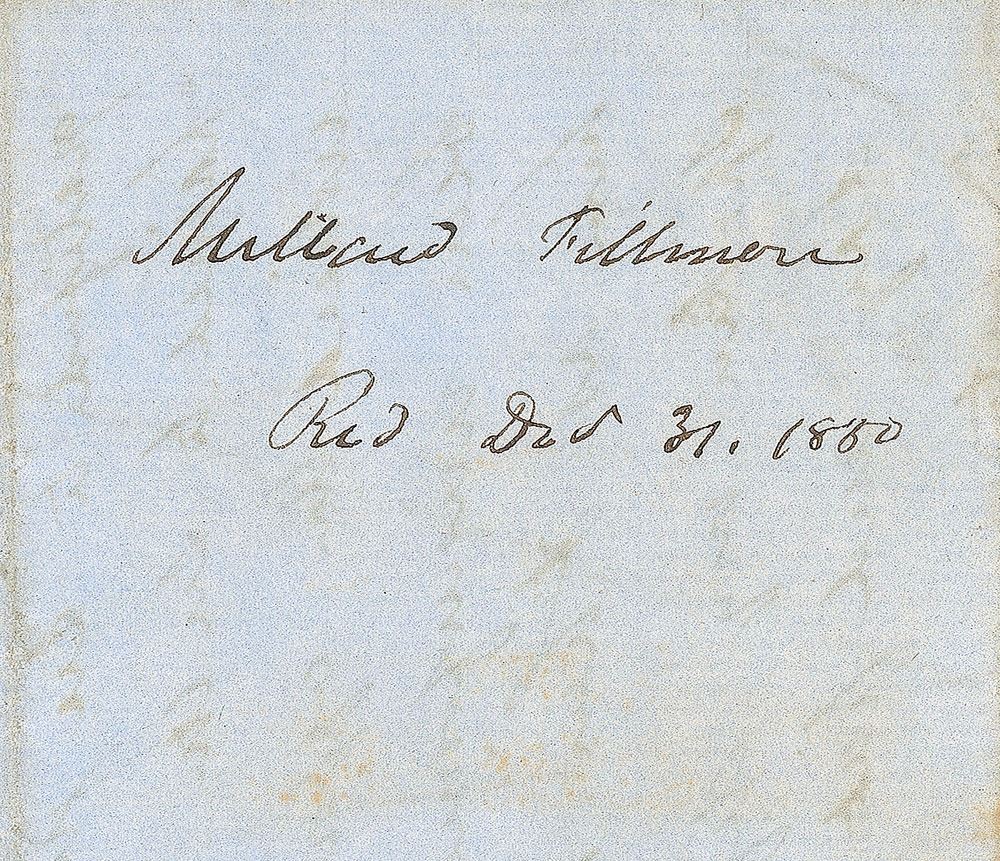 Millard Fillmore
Recd Decr 31. 1850